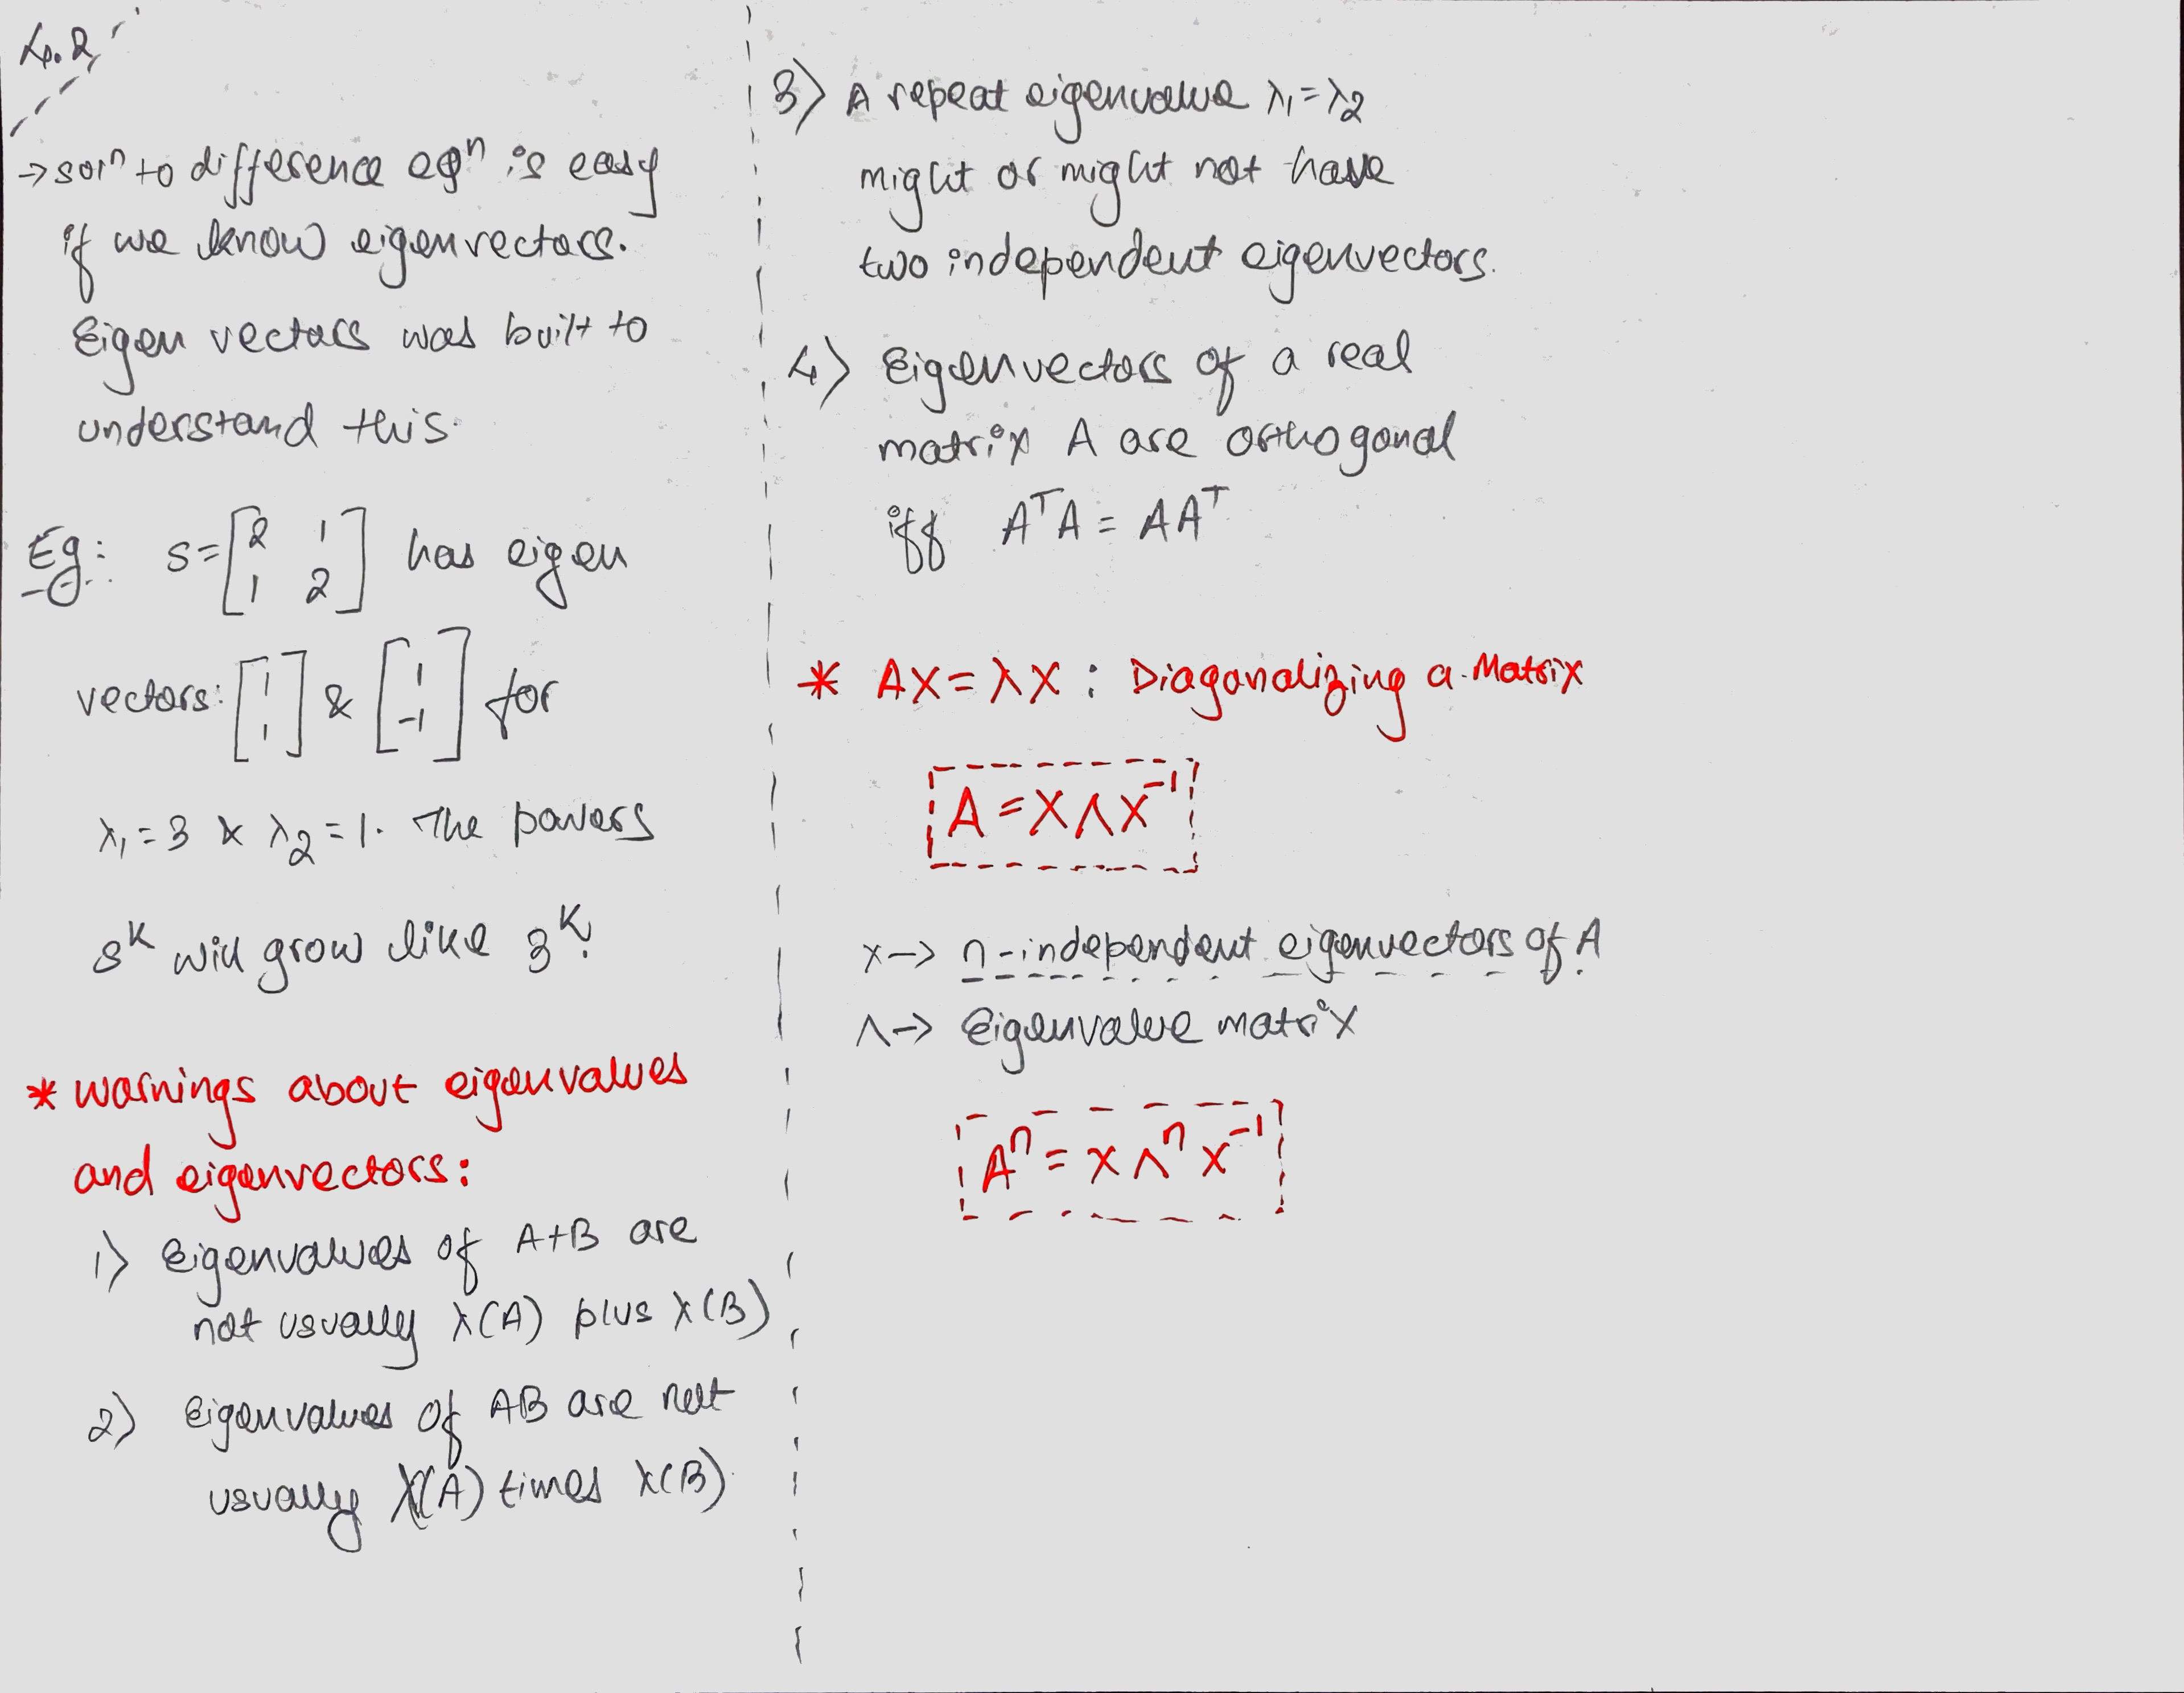 4.2
→ solⁿ to difference eqⁿ is easy
if we know eigenvectors.
Eigen vectors was built to
understand this.
Eg: S = [2 1; 1 2] has eigen
vectors: [1; 1] & [1; -1] for
λ₁ = 3 & λ₂ = 1. The powers
Sᴷ will grow like 3ᴷ.
* Warnings about eigenvalues
and eigenvectors:
1) Eigenvalues of A+B are
not usually λ(A) plus λ(B)
2) Eigenvalues of AB are not
usually λ(A) times λ(B).
3) A repeat eigenvalue λ₁ = λ₂
might or might not have
two independent eigenvectors.
4) Eigenvectors of a real
matrix A are orthogonal
iff AᵀA = AAᵀ
* AX = λX : Diagonalizing a Matrix
A = XΛX⁻¹
X → n-independent eigenvectors of A.
Λ → Eigenvalue matrix
Aⁿ = XΛⁿX⁻¹